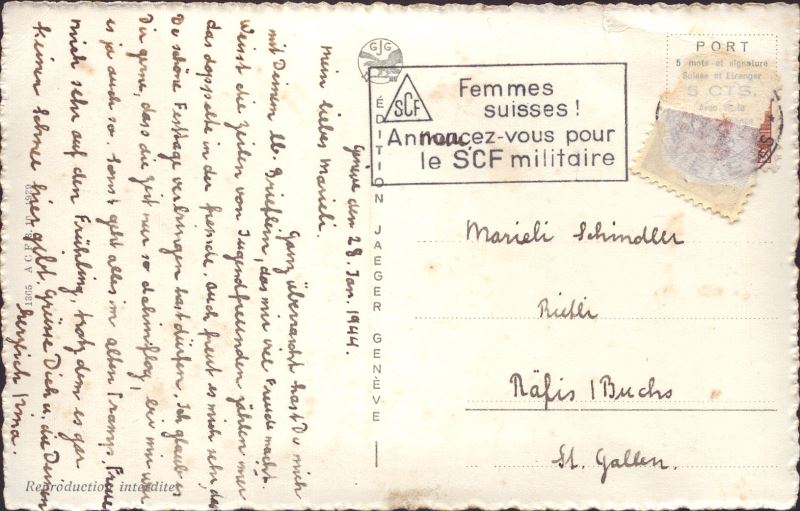 Genève den 28. Jan. 1944.
Mein liebes Marieli.
Ganz überrascht hast Du mich
mit Deinem lb. Brieflein, das mir viel Freude macht.
Weisst die Zeilen von Jugendfreunden zählen mir
das doppelte in der Fremde. Auch freut es mich sehr, dass
Du schöne Festtage verbringen hast dürfen. Ich glaub es
Dir gerne, dass die Zeit nur so dahinflog, bei mir war
es ja auch so. Sonst geht alles im alten Tramp. Freue
mich sehr auf den Frühling, trotzdem es gar
keinen Schnee hier gibt. Grüsse Dich u. die Deinen
herzlich Irma.
GJG
ÉDITION JAEGER GENÈVE
1365 A
Reproduction interdite
SCF
Femmes
suisses!
Annoncez-vous pour
le SCF militaire
PORT
5 mots et signature
Suisse et Etranger
5 CTS.
Marieli Schindler
Rietli
Räfis / Buchs
St. Gallen.